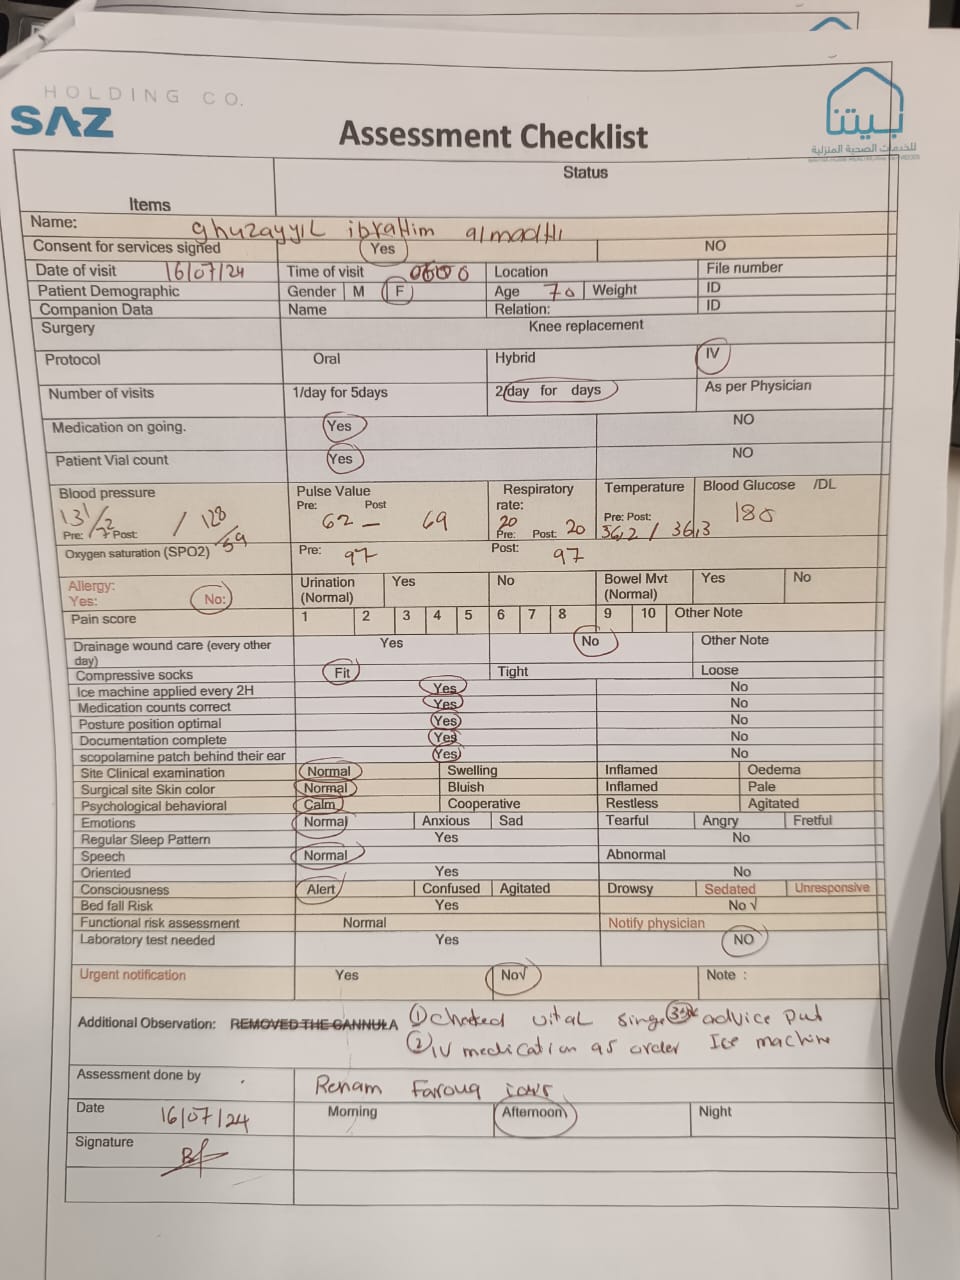 HOLDING CO.
SAZ
بيتنا
للخدمات الصحية المنزلية
Assessment Checklist
Items Status
Name: ghuzayyiL ibrahim almadhi
Consent for services signed Yes NO
Date of visit 16/07/24 Time of visit Location File number
Patient Demographic Gender M F Age 70 Weight ID
Companion Data Name Relation: ID
Surgery Knee replacement
Protocol Oral Hybrid IV
Number of visits 1/day for 5days 2/day for days As per Physician
Medication on going. Yes NO
Patient Vial count Yes NO
Blood pressure Pulse Value Respiratory rate: Temperature Blood Glucose /DL
Pre: 131/72 Post: / 128/59 Pre: 62 – Post 69 Pre: 20 Post: 20 Pre: Post: 36,2 / 36,3 180
Oxygen saturation (SPO2) Pre: 97 Post: 97
Allergy: Yes: No: Urination (Normal) Yes No Bowel Mvt (Normal) Yes No
Pain score 1 2 3 4 5 6 7 8 9 10 Other Note
Drainage wound care (every other day) Yes No Other Note
Compressive socks Fit Tight Loose
Ice machine applied every 2H Yes No
Medication counts correct Yes No
Posture position optimal Yes No
Documentation complete Yes No
scopolamine patch behind their ear Yes No
Site Clinical examination Normal Swelling Inflamed Oedema
Surgical site Skin color Normal Bluish Inflamed Pale
Psychological behavioral Calm Cooperative Restless Agitated
Emotions Normal Anxious Sad Tearful Angry Fretful
Regular Sleep Pattern Yes No
Speech Normal Abnormal
Oriented Yes No
Consciousness Alert Confused Agitated Drowsy Sedated Unresponsive
Bed fall Risk Yes No √
Functional risk assessment Normal Notify physician
Laboratory test needed Yes NO
Urgent notification Yes No√ Note :
Additional Observation: REMOVED THE CANNULA ① cheked vital singe ③ advice put
② IV medication as order Ice machine
Assessment done by Renam Farouq
Date 16/07/24 Morning Afternoon Night
Signature